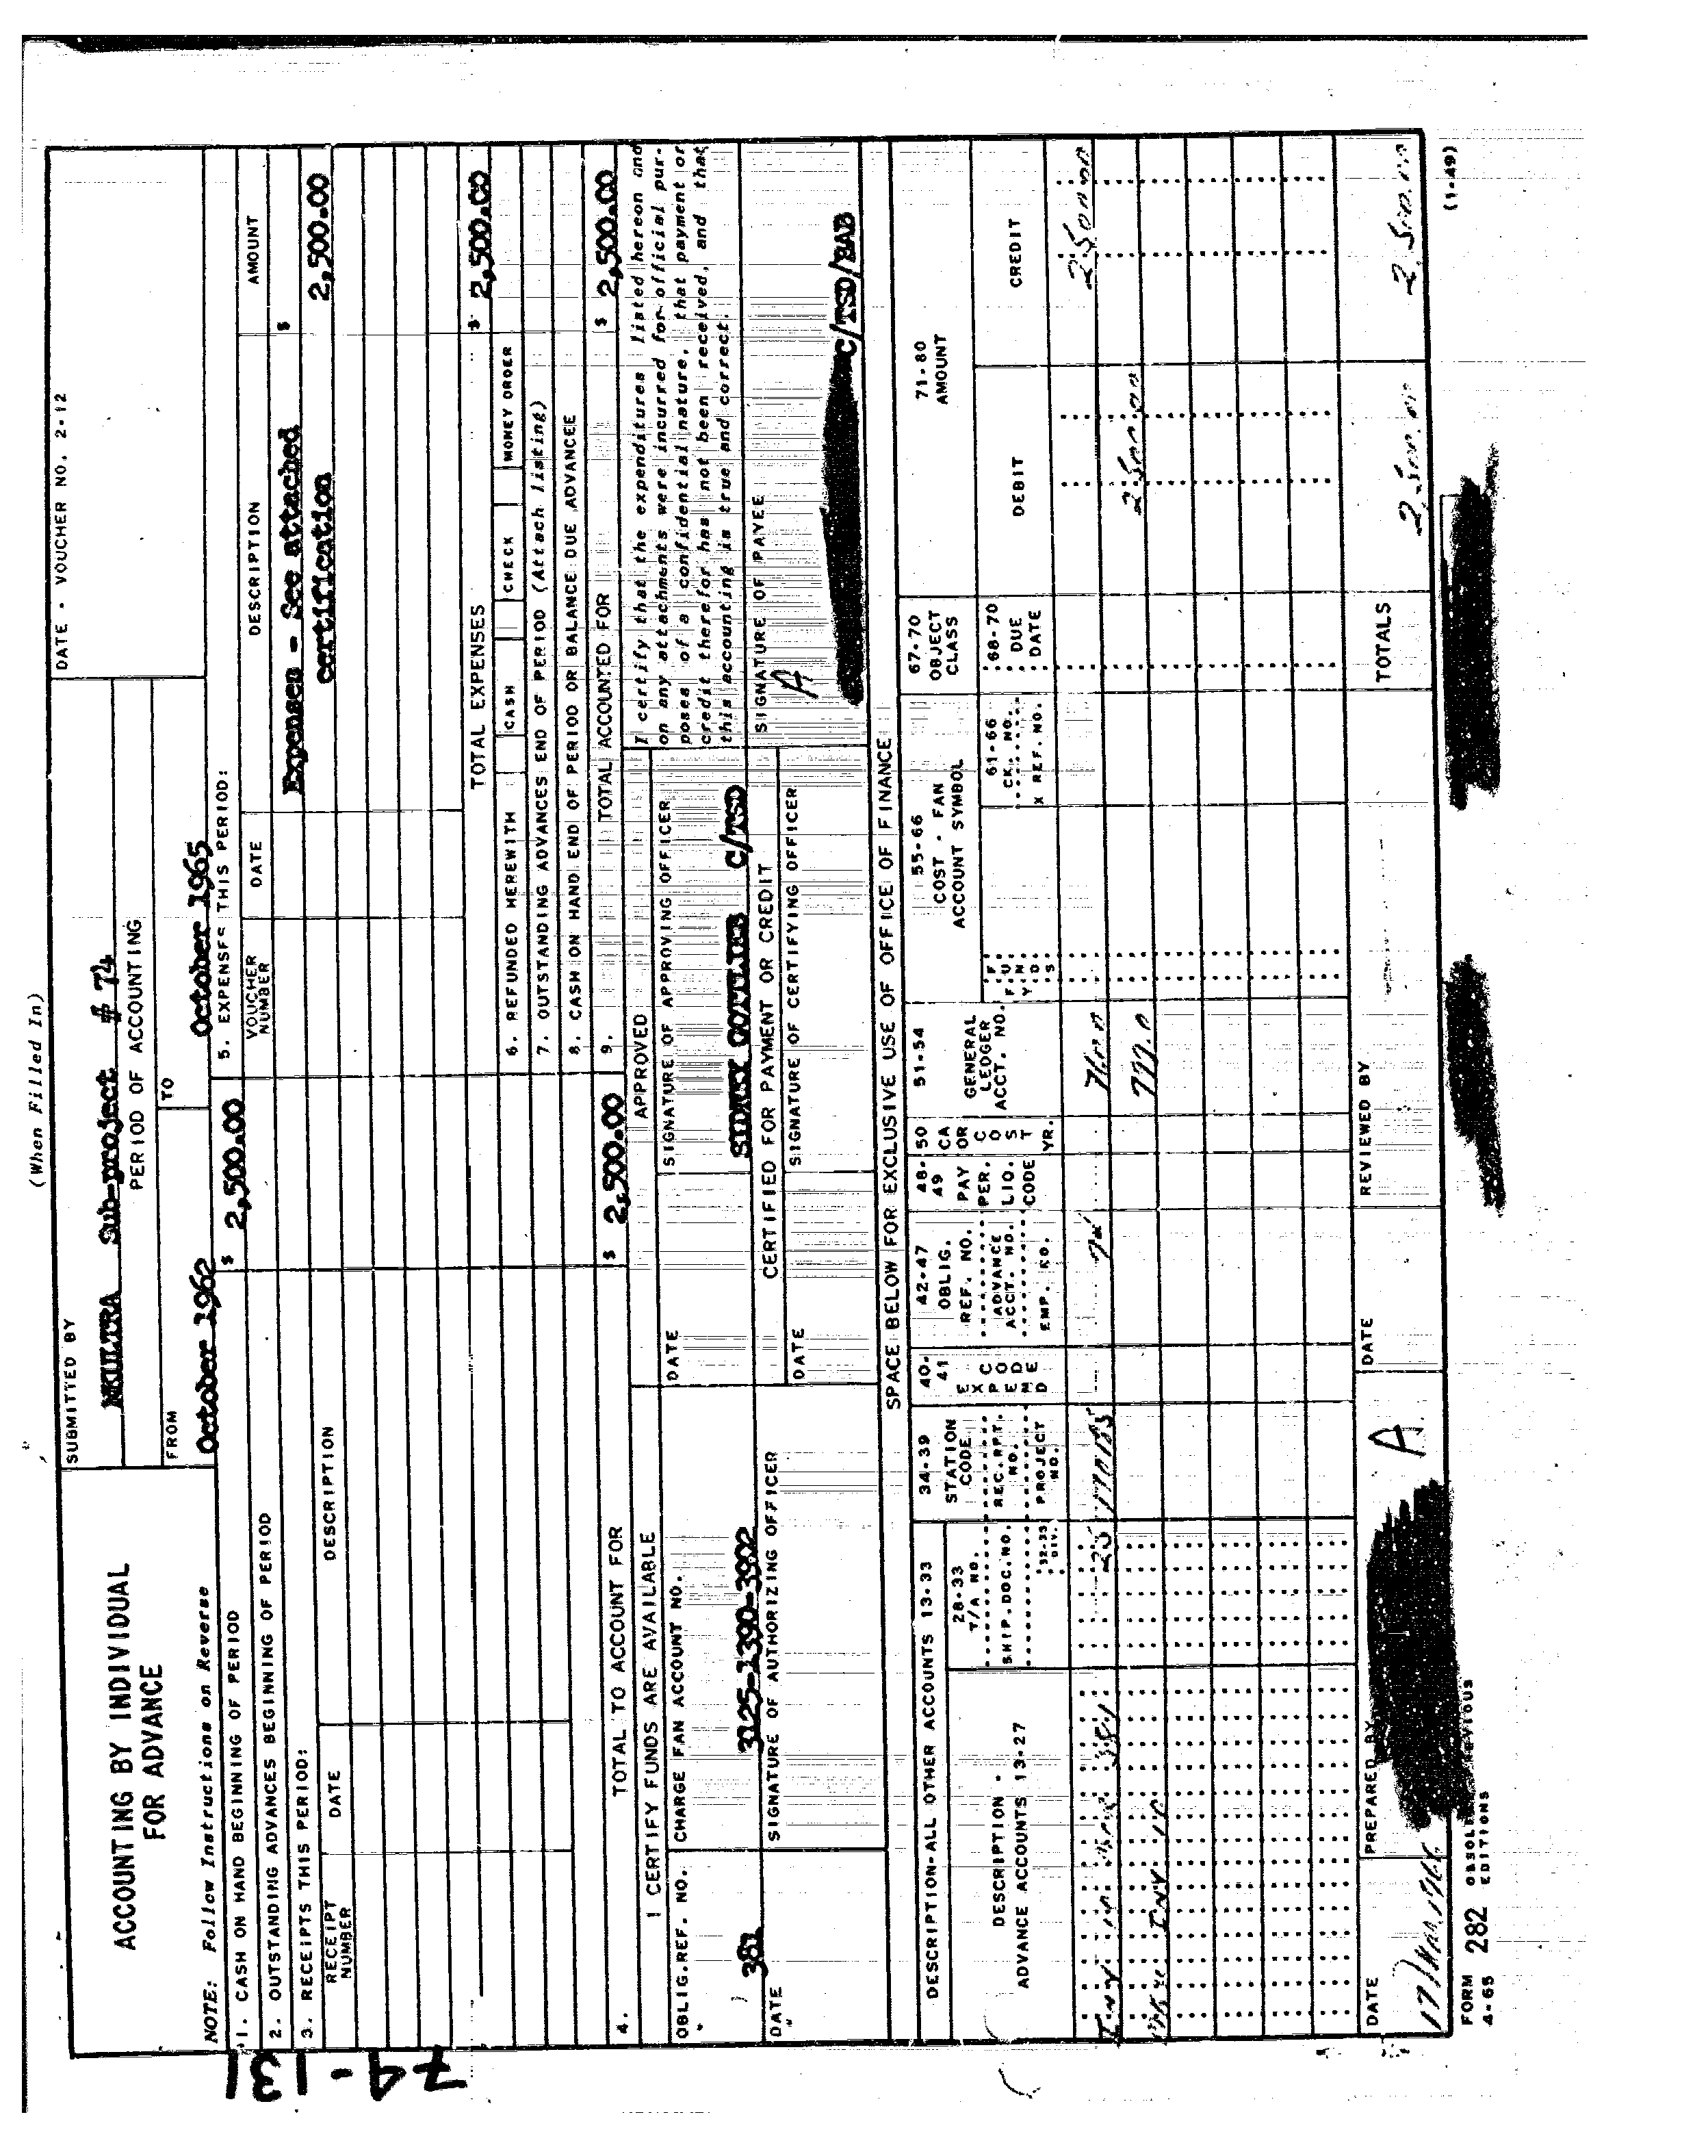 (When Filled In)
ACCOUNTING BY INDIVIDUAL
FOR ADVANCE
SUBMITTED BY
MKULTRA Sub-project # 74
PERIOD OF ACCOUNTING
FROM
October 1962
TO
October 1965
DATE - VOUCHER NO. 2-12
NOTE: Follow Instructions on Reverse
1. CASH ON HAND BEGINNING OF PERIOD
$ 2,500.00
2. OUTSTANDING ADVANCES BEGINNING OF PERIOD
3. RECEIPTS THIS PERIOD:
RECEIPT NUMBER
DATE
DESCRIPTION
5. EXPENSES THIS PERIOD:
VOUCHER NUMBER
DATE
DESCRIPTION
AMOUNT
Expenses - See attached
certification
$
2,500.00
TOTAL EXPENSES
$ 2,500.00
6. REFUNDED HEREWITH
CASH
CHECK
MONEY ORDER
7. OUTSTANDING ADVANCES END OF PERIOD (Attach listing)
8. CASH ON HAND END OF PERIOD OR BALANCE DUE ADVANCEE
4. TOTAL TO ACCOUNT FOR
$ 2,500.00
9. TOTAL ACCOUNTED FOR
$ 2,500.00
I CERTIFY FUNDS ARE AVAILABLE
OBLIG.REF. NO.
381
CHARGE FAN ACCOUNT NO.
3125-1390-3902
DATE
SIGNATURE OF AUTHORIZING OFFICER
APPROVED
DATE
SIGNATURE OF APPROVING OFFICER
SIDNEY GOTTLIEB C/TSD
CERTIFIED FOR PAYMENT OR CREDIT
DATE
SIGNATURE OF CERTIFYING OFFICER
I certify that the expenditures listed hereon and
on any attachments were incurred for official pur-
poses of a confidential nature, that payment or
credit therefor has not been received, and that
this accounting is true and correct.
SIGNATURE OF PAYEE
A
C/TSD/BAB
SPACE BELOW FOR EXCLUSIVE USE OF OFFICE OF FINANCE
DESCRIPTION-ALL OTHER ACCOUNTS 13-33
DESCRIPTION -
ADVANCE ACCOUNTS 13-27
28-33
T/A NO.
SHIP.DOC.NO.
32-33
DIV.
34-39
STATION
CODE
REC.RPT.
NO.
PROJECT
NO.
40-
41
EXPEND
CODE
42-47
OBLIG.
REF. NO.
ADVANCE
ACCT. NO.
EMP. NO.
48-
49
PAY
PER.
LIQ.
CODE
50
CA
OR
COST
YR.
51-54
GENERAL
LEDGER
ACCT. NO.
55-66
COST - FAN
ACCOUNT SYMBOL
F.F.
U.
Y.N.
D.
S
61-66
CK. NO.
X REF. NO.
67-70
OBJECT
CLASS
68-70
DUE
DATE
71-80
AMOUNT
DEBIT
CREDIT
TOTALS
DATE
PREPARED BY
A
DATE
REVIEWED BY
FORM
4-65
282
OBSOLETE PREVIOUS
EDITIONS
(1-49)
74-131